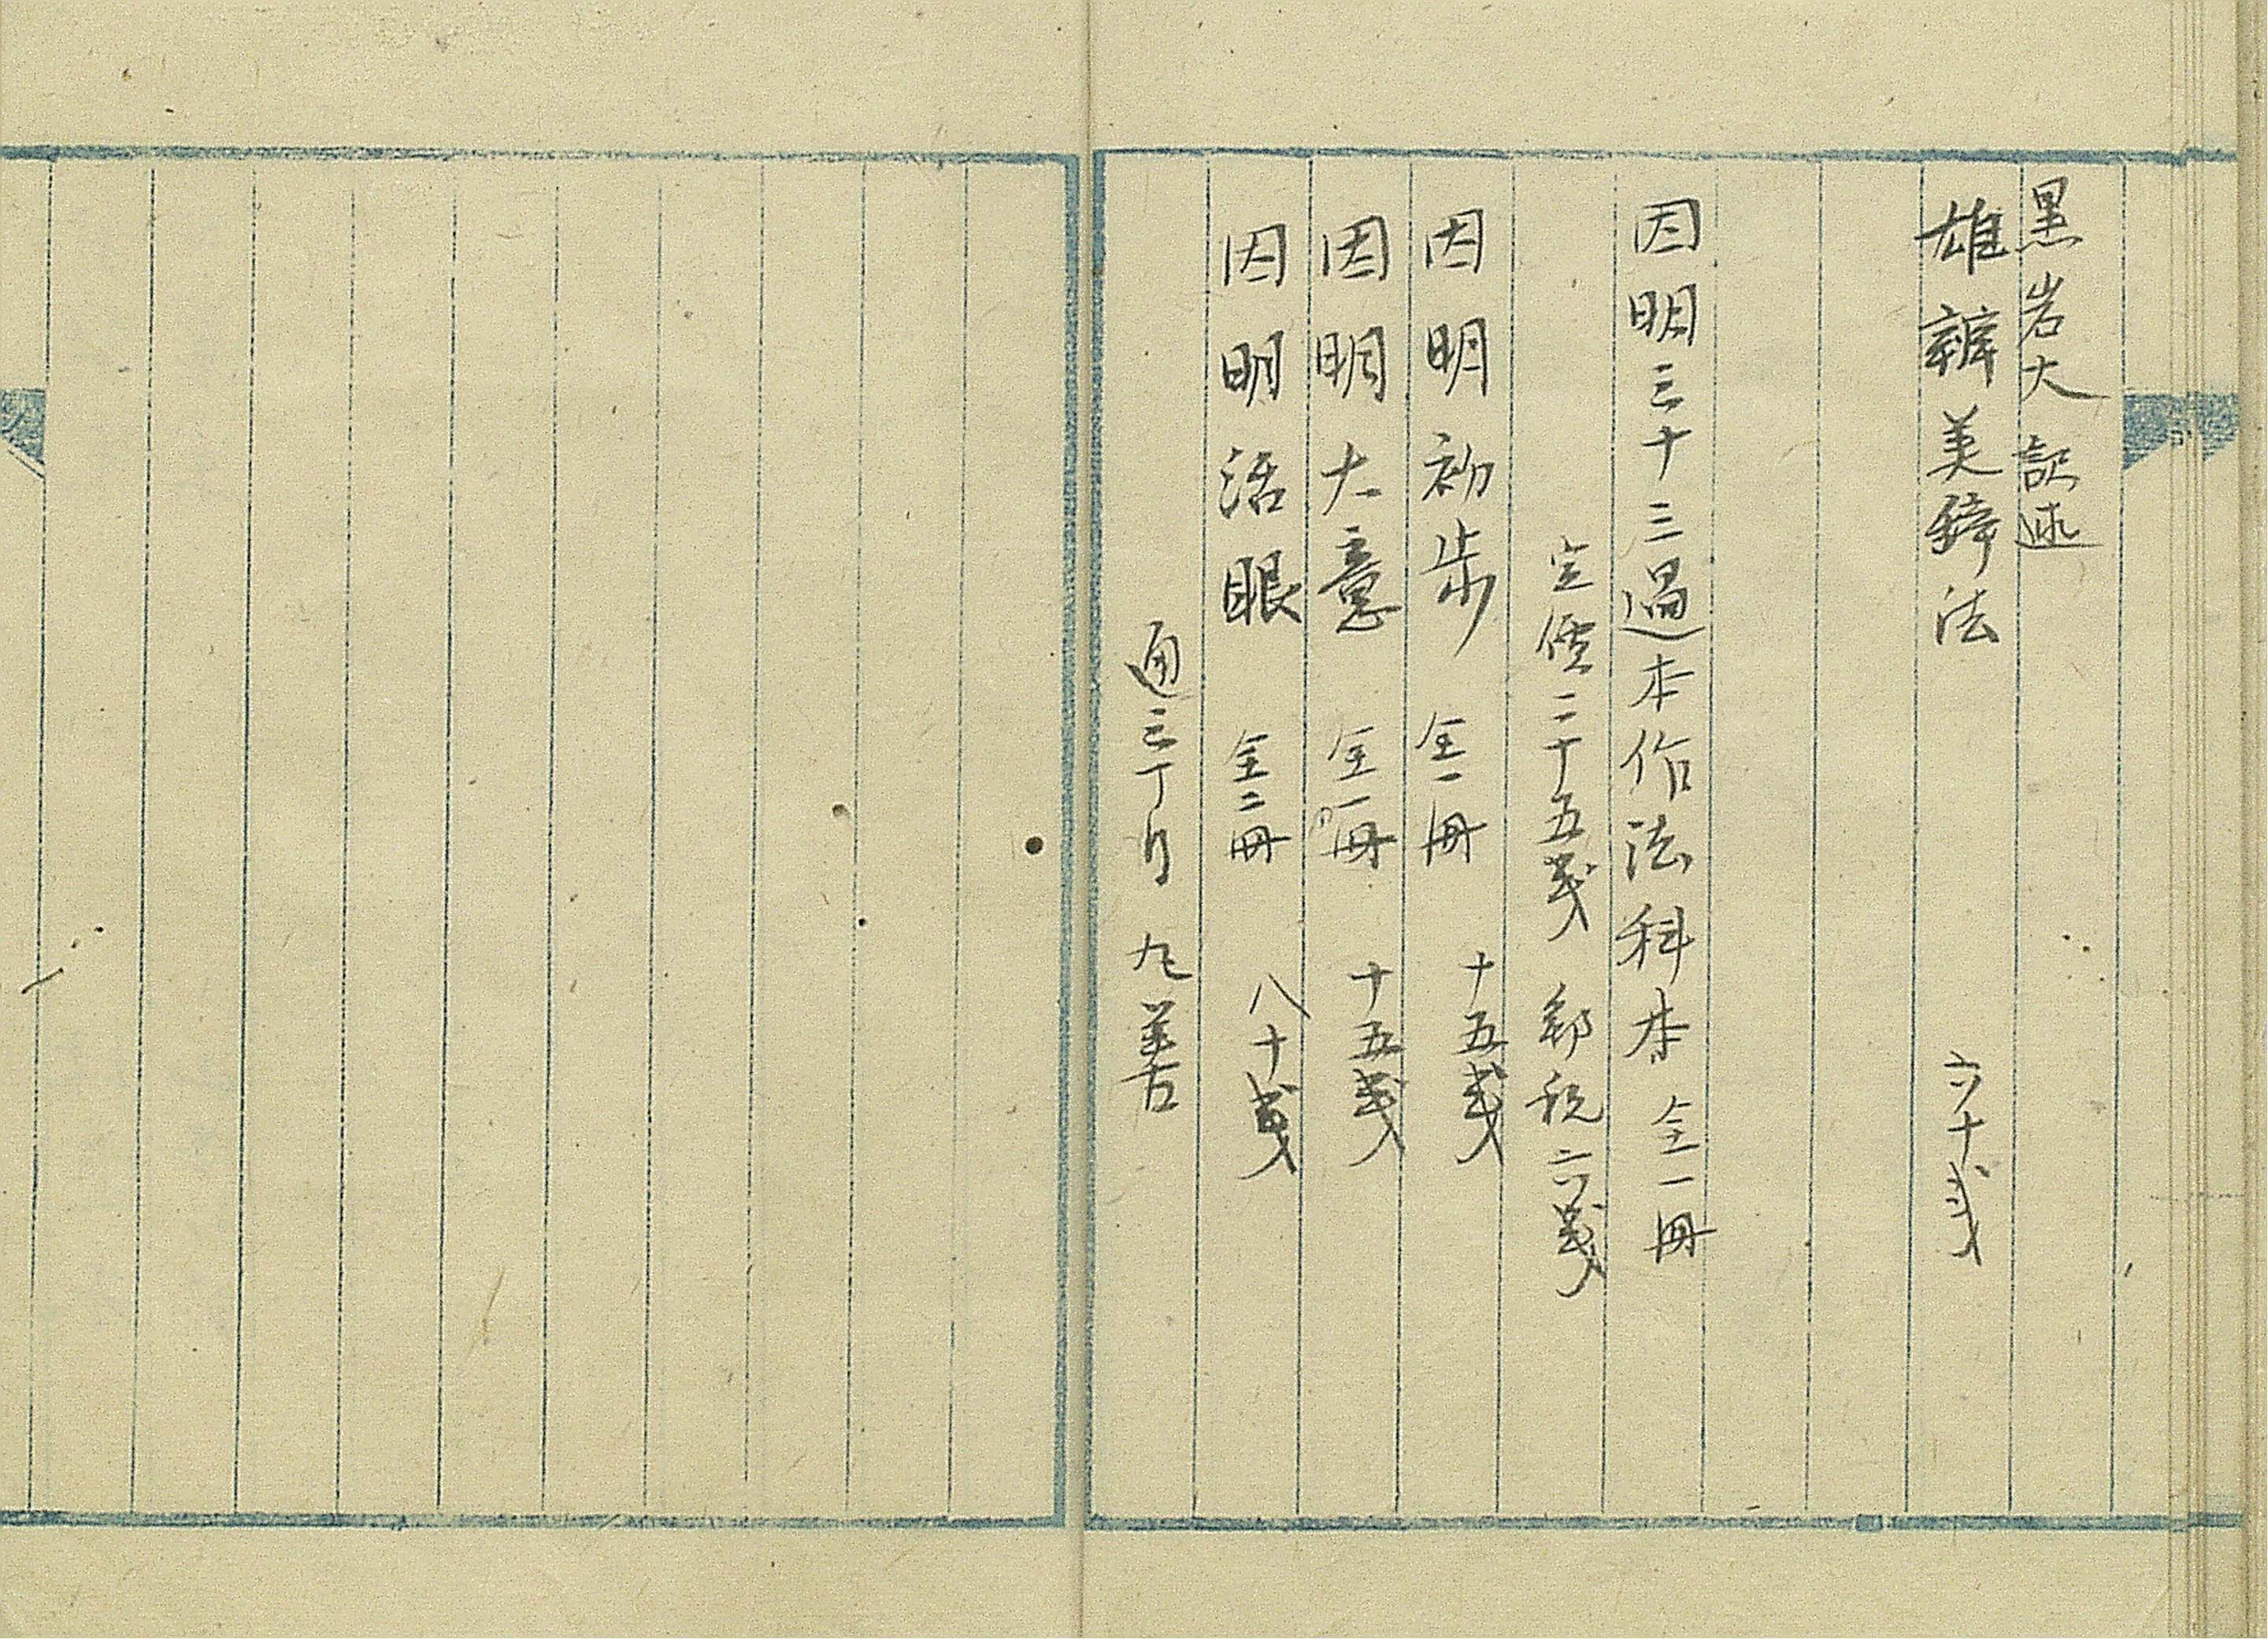 黒岩大訳述
雄辯美辞法 六十戋
因明三十三過本作法科本 全一冊
定價二十五戋 郵税六戋
因明初步 全一冊 十五戋
因明大意 全一冊 十五戋
因明活眼 全二冊 八十戋
通三丁目 丸善